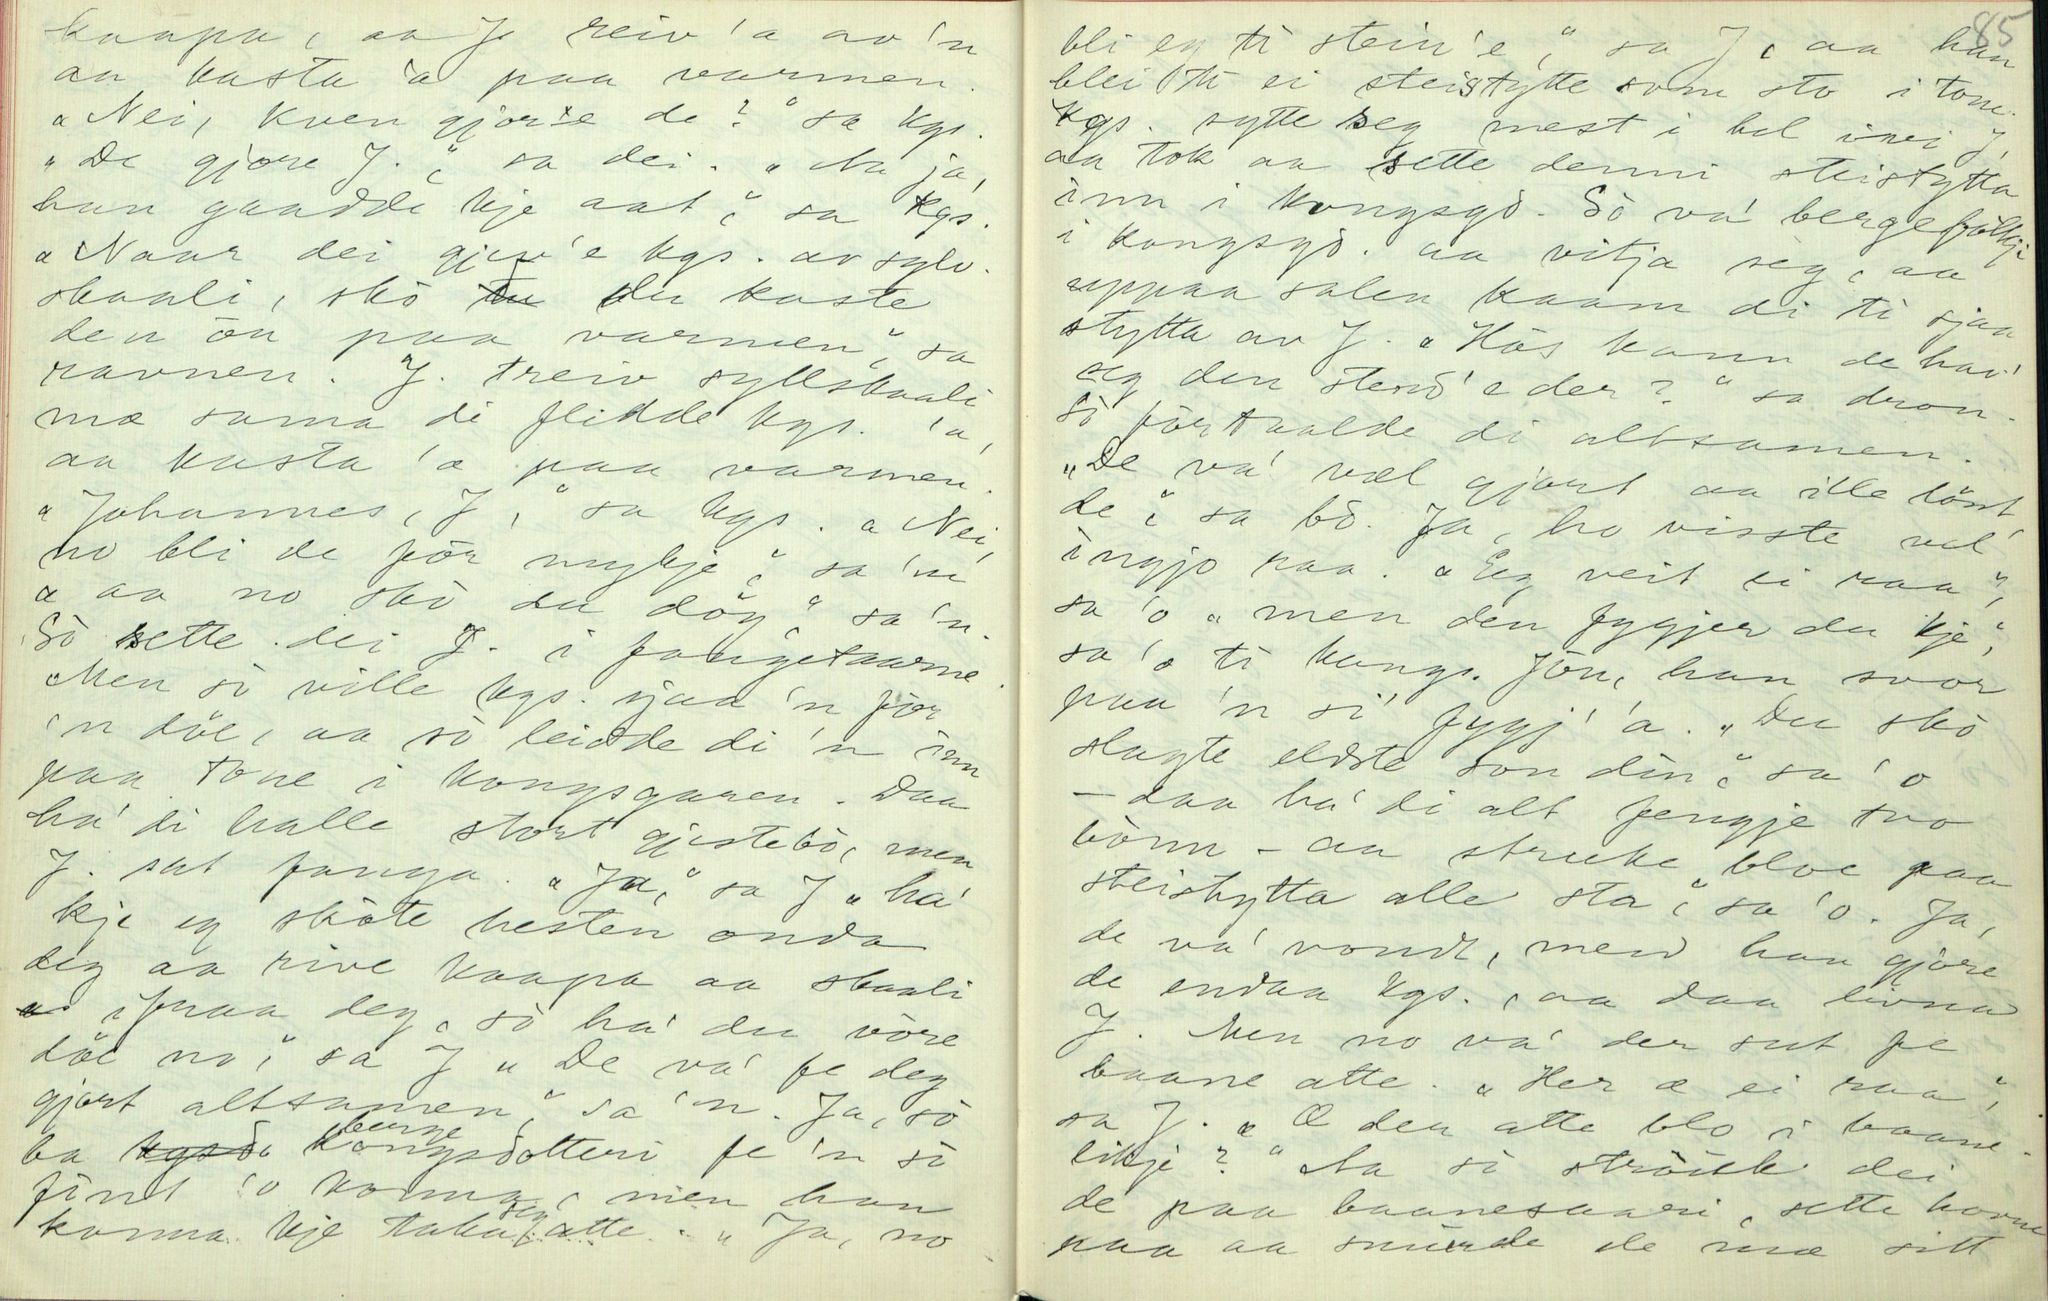 kaapa, aa J. reiv 'a av 'n
aa kasta 'a paa varmen.
„Nei, kven gjorde de?“ sa kgs.
„De gjore J.,“ sa dei. „Aa ja,
han gaadde kje aat,“ sa kgs.
„Naar dei gjev'e kgs. av sylv-
skaali, skò du kaste
den òu paa varmen,“ sa
ravnen. J. treiv syllskaali
mæ sama di flidde kgs. 'a,
aa kasta 'a paa varmen.
„Johannes, J,“ sa kgs. „Nei,
no bli de før mykje,“ sa 'n
„aa no skò du døy,“ sa 'n.
Sò sette dei J. i fangetaarne.
Men sò ville kgs. sjaa 'n før
'n døe, aa sò leidde di 'n inn
paa tone i kongsgaren. Daa
ha' di halle stort gjestebò, men
J. sat fanga. „Ja,“ sa J „ha'
kje eg skòte hesten onda
deg aa rive kaapa aa skaali
ifraa deg, sò ha' du vòre
døe no,“ sa J „De va' fe deg
gjort altsamen,“ sa 'n. Ja, sò
ba bergekongsdotteri fe 'n sò
fint 'o konna, men han
konna kje taka seg atte. „Ja, no
85
bli eg ti stein'e,“ sa J, aa han
blei ti ei steistytte som sto i tone.
Kgs. sytte seg mest i hel ivei J,
aa tok aa sette denni steistytta
inn i kongsgò. Sò va' bergefolkji
i kongsgò. aa vitja seg, aa
uppaa salen kaam di ti sjaa
stytta av J. „Hòs kann de hav'
seg den stend'e der?“ sa dron.
Sò førtaalde di altsamen.
„De va' væl gjort aa ille lønt
de,“ sa bò. Ja, ho visste vel
ingjo raa. „Eg veit ei raa“,
sa 'o „men den fygjer du kje,“
sa 'o ti kongs. Jòu, han svor
paa 'n sò' fygj' 'a. „Du skò
slagte eldste son din,“ sa 'o
– daa ha' di alt fengje tvo
bònn – aa struke bloe paa
steistytta alle sta,“ sa 'o. Ja,
de va' vondt, men han gjore
de endaa kgs., aa daa livna
J. Men no va' der sut fe
baane atte. „Her æ ei raa“,
sa J. „Æ der atte blo i baane-
likje?“ Aa sò stròuk dei
de paa baanesaari, sette hovue
paa aa smurde de mæ sitt